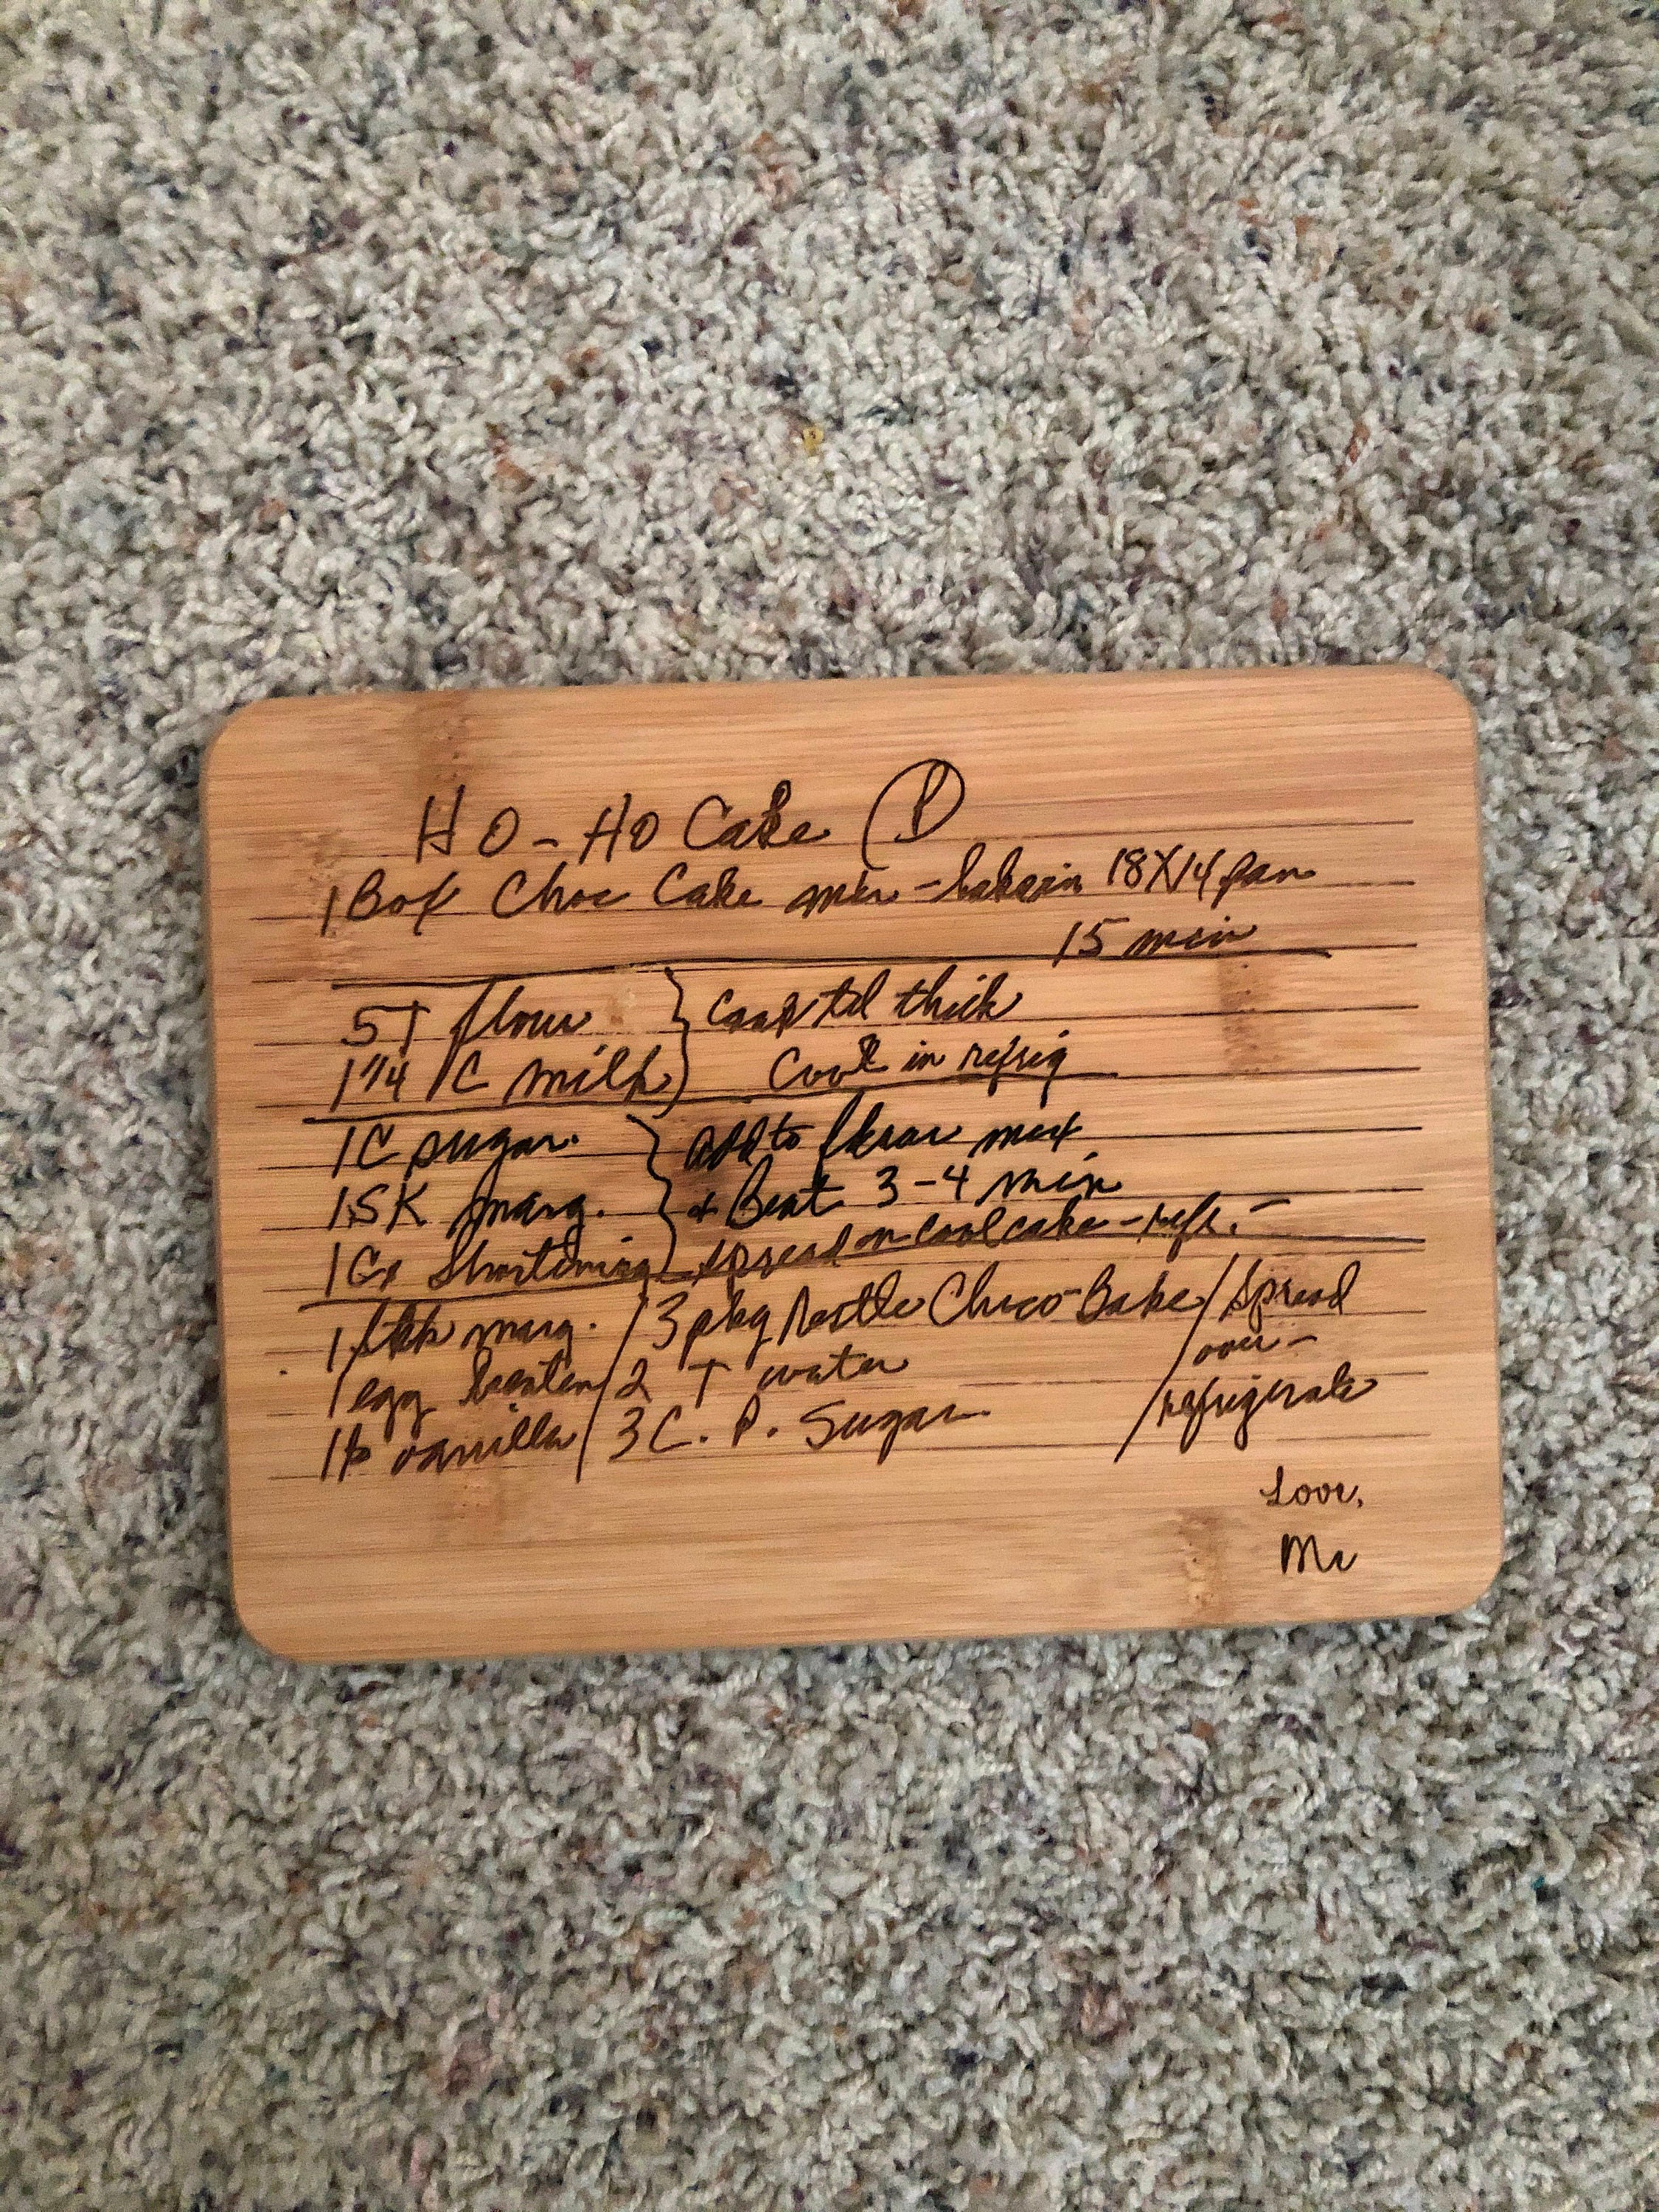 HO-HO Cake
1 Box Choc Cake mix - bake in 18X14 pan
15 min
5T flour } Cook til thick
1 1/4 C milk } Cool in refrig
1C sugar. } add to flour mix
1 SK marg. } + Beat 3-4 min
1 C Shortening } spread on cool cake - refr. -
1 stk marg. / 3 pkg Nestle Choco-Bake / Spread
1 egg beaten / 2 T water / over -
1 t vanilla / 3 C. P. Sugar / refrigerate
Love,